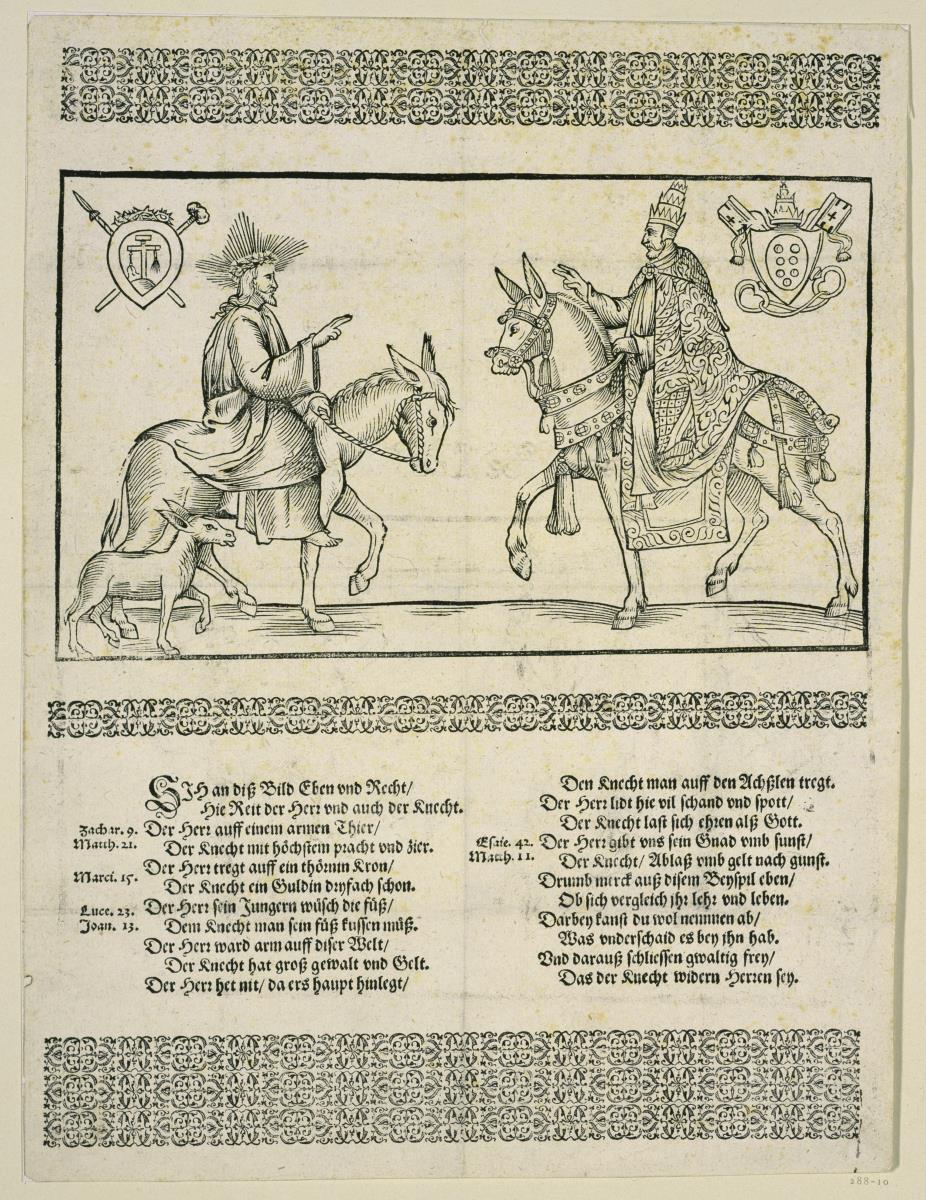 SIH an diß Bild Eben vnd Recht/
Hie Reit der Herr vnd auch der Knecht.
Zachar. 9. Der Herr auff einem armen Thier/
Matth. 21. Der Knecht mit höchstem pracht vnd zier.
Der Herr tregt auff ein thörnin Kron/
Marci. 15. Der Knecht ein Guldin dryfach schon.
Luce. 23. Der Herr sein Jungern wüsch die füß/
Joan. 13. Dem Knecht man sein füß kussen müß.
Der Herr ward arm auff diser Welt/
Der Knecht hat groß gewalt vnd Gelt.
Der Herr het nit/ da ers haupt hinlegt/
Den Knecht man auff den Achßlen tregt.
Der Herr lidt hie vil schand vnd spott/
Der Knecht last sich ehren alß Gott.
Esaie. 42. Der Herr gibt vns sein Gnad vmb sunst/
Matth. 11. Der Knecht/ Ablaß vmb gelt nach gunst.
Drumb merck auß disem Beyspil eben/
Ob sich vergleich jhr lehr vnd leben.
Darbey kanst du wol nemmen ab/
Was vnderschaid es bey jhn hab.
Vnd darauß schliessen gwaltig frey/
Das der Knecht widern Herren sey.
288-10